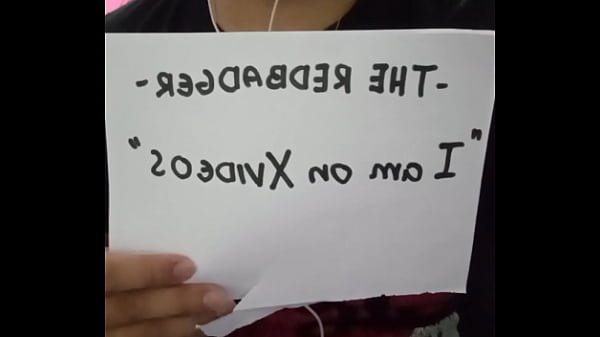 -THE REDBADGER-
"I am on XVIDEOS"